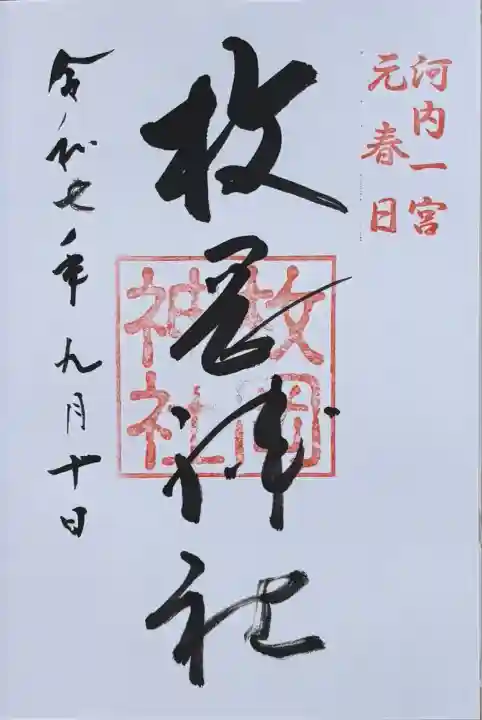 河内一宮
元春日
枚岡神社
枚岡神社
令和七年九月十日